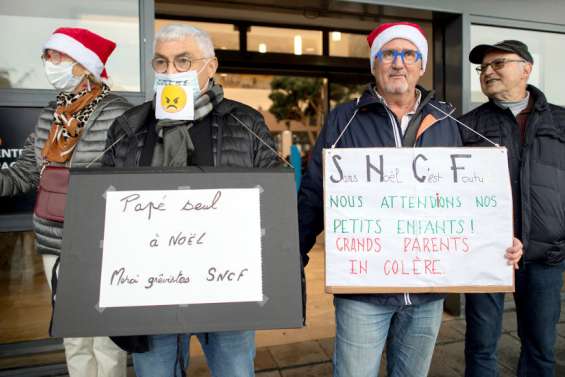 Papé seul
à NOËL
Merci grévistes SNCF
Sans Noël C'est Foutu
NOUS ATTENDIONS NOS
PETITS ENFANTS !
GRANDS PARENTS
IN COLÈRE.